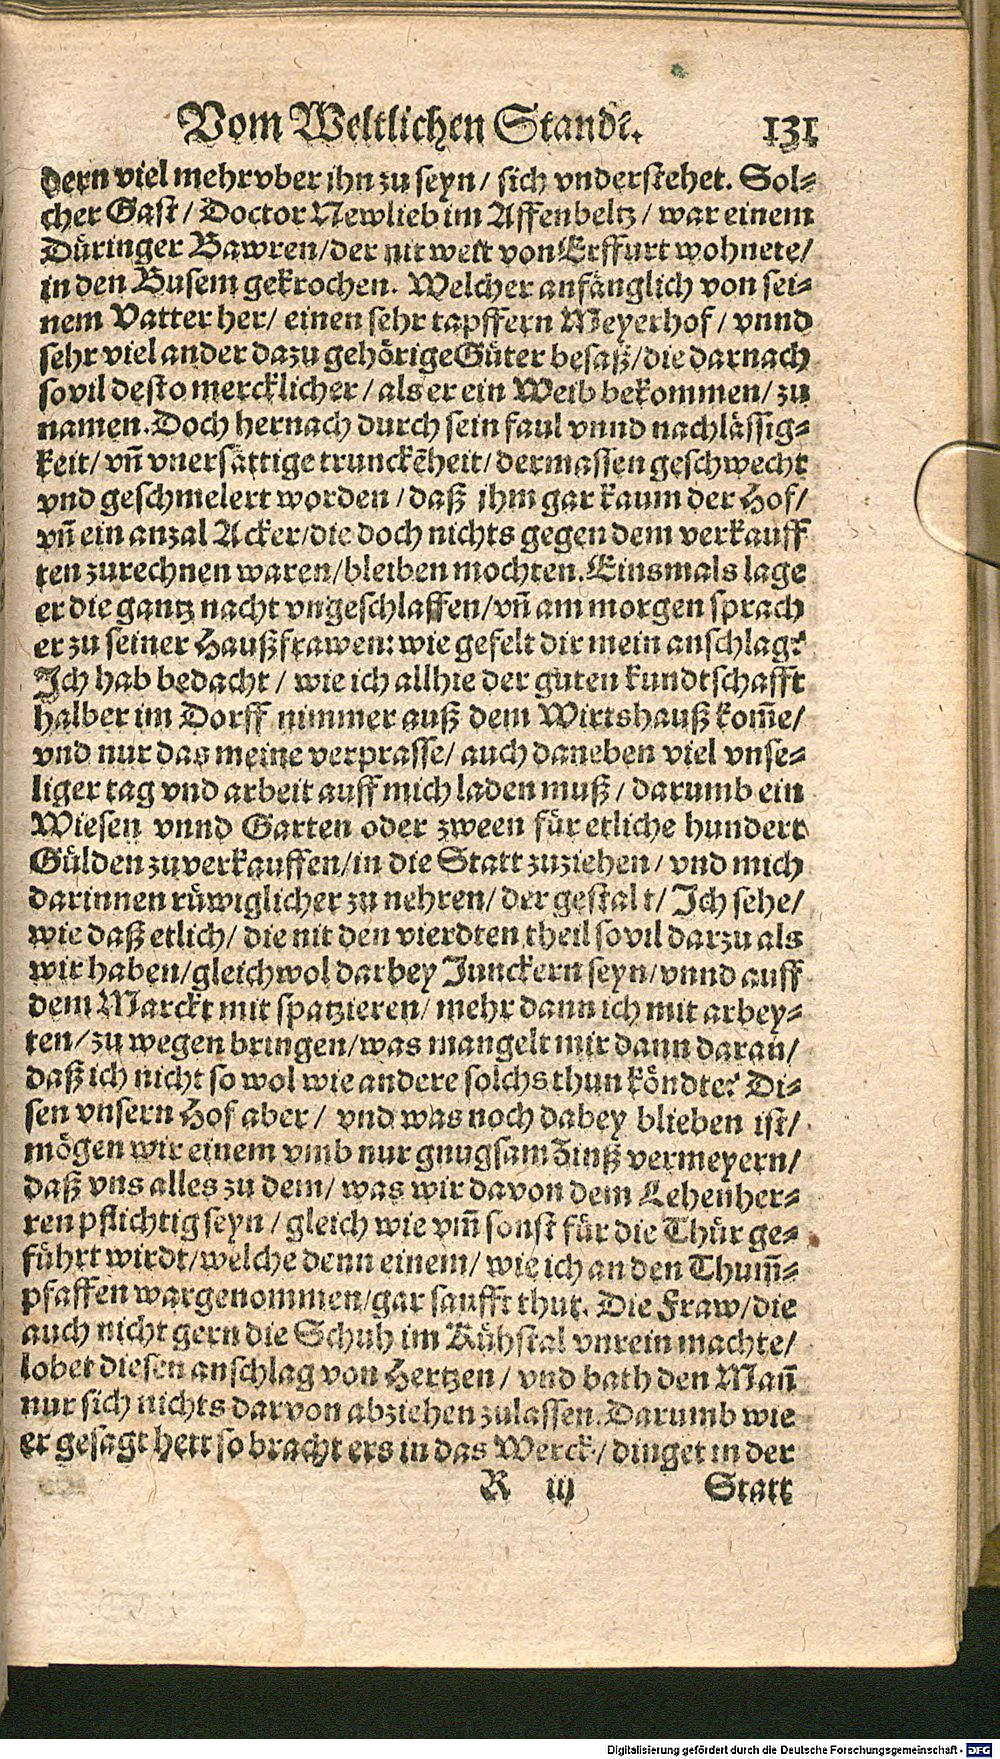 Vom Weltlichen Stande. 131
dern viel mehr vber ihn zu seyn / sich vnderstehet. Sol⸗
cher Gast / Doctor Newlieb im Affenbeltz / war einem
Düringer Bawren / der nit weit von Erffurt wohnete /
in den Busem gekrochen. Welcher anfänglich von sei⸗
nem Vatter her / einen sehr tapffern Meyerhof / vnnd
sehr viel ander dazu gehörige Güter besaß / die darnach
so vil desto mercklicher / als er ein Weib bekommen / zu
namen. Doch hernach durch sein faul vnnd nachlässig⸗
keit / vñ vnersättige trunckẽheit / dermassen geschwecht
vnd geschmelert worden / daß ihm gar kaum der Hof /
vñ ein anzal Acker / die doch nichts gegen dem verkauff
ten zurechnen waren / bleiben mochten. Einsmals lage
er die gantz nacht vngeschlaffen / vñ am morgen sprach
er zu seiner Haußfrawen: wie gefelt dir mein anschlag?
Ich hab bedacht / wie ich allhie der guten kundtschafft
halber im Dorff nimmer auß dem Wirtshauß kom̃e /
vnd nur das meine verprasse / auch daneben viel vnse⸗
liger tag vnd arbeit auff mich laden muß / darumb ein
Wiesen vnnd Garten oder zween für etliche hundert
Gülden zuverkauffen / in die Statt zuziehen / vnd mich
darinnen rüwiglicher zu nehren / der gestalt / Ich sehe /
wie daß etlich / die nit den vierdten theil so vil darzu als
wir haben / gleichwol darbey Junckern seyn / vnnd auff
dem Marckt mit spatzieren / mehr dann ich mit arbey⸗
ten / zu wegen bringen / was mangelt mir dann daran /
daß ich nicht so wol wie andere solchs thun köndte? Di⸗
sen vnsern Hof aber / vnd was noch dabey blieben ist /
mögen wir einem vmb nur gnugsam Zinß vermeyern /
daß vns alles zu dem / was wir davon dem Lehenher⸗
ren pflichtig seyn / gleich wie vm̃ sonst für die Thür ge⸗
führt wirdt / welche denn einem / wie ich an den Thum̃⸗
pfaffen wargenommen / gar saufft thut. Die Fraw / die
auch nicht gern die Schuh im Kühstal vnrein machte /
lobet diesen anschlag von Hertzen / vnd bath den Mañ
nur sich nichts darvon abziehen zulassen. Darumb wie
er gesagt hett so bracht ers in das Werck / dinget in der
R iij Statt
Digitalisierung gefördert durch die Deutsche Forschungsgemeinschaft - DFG